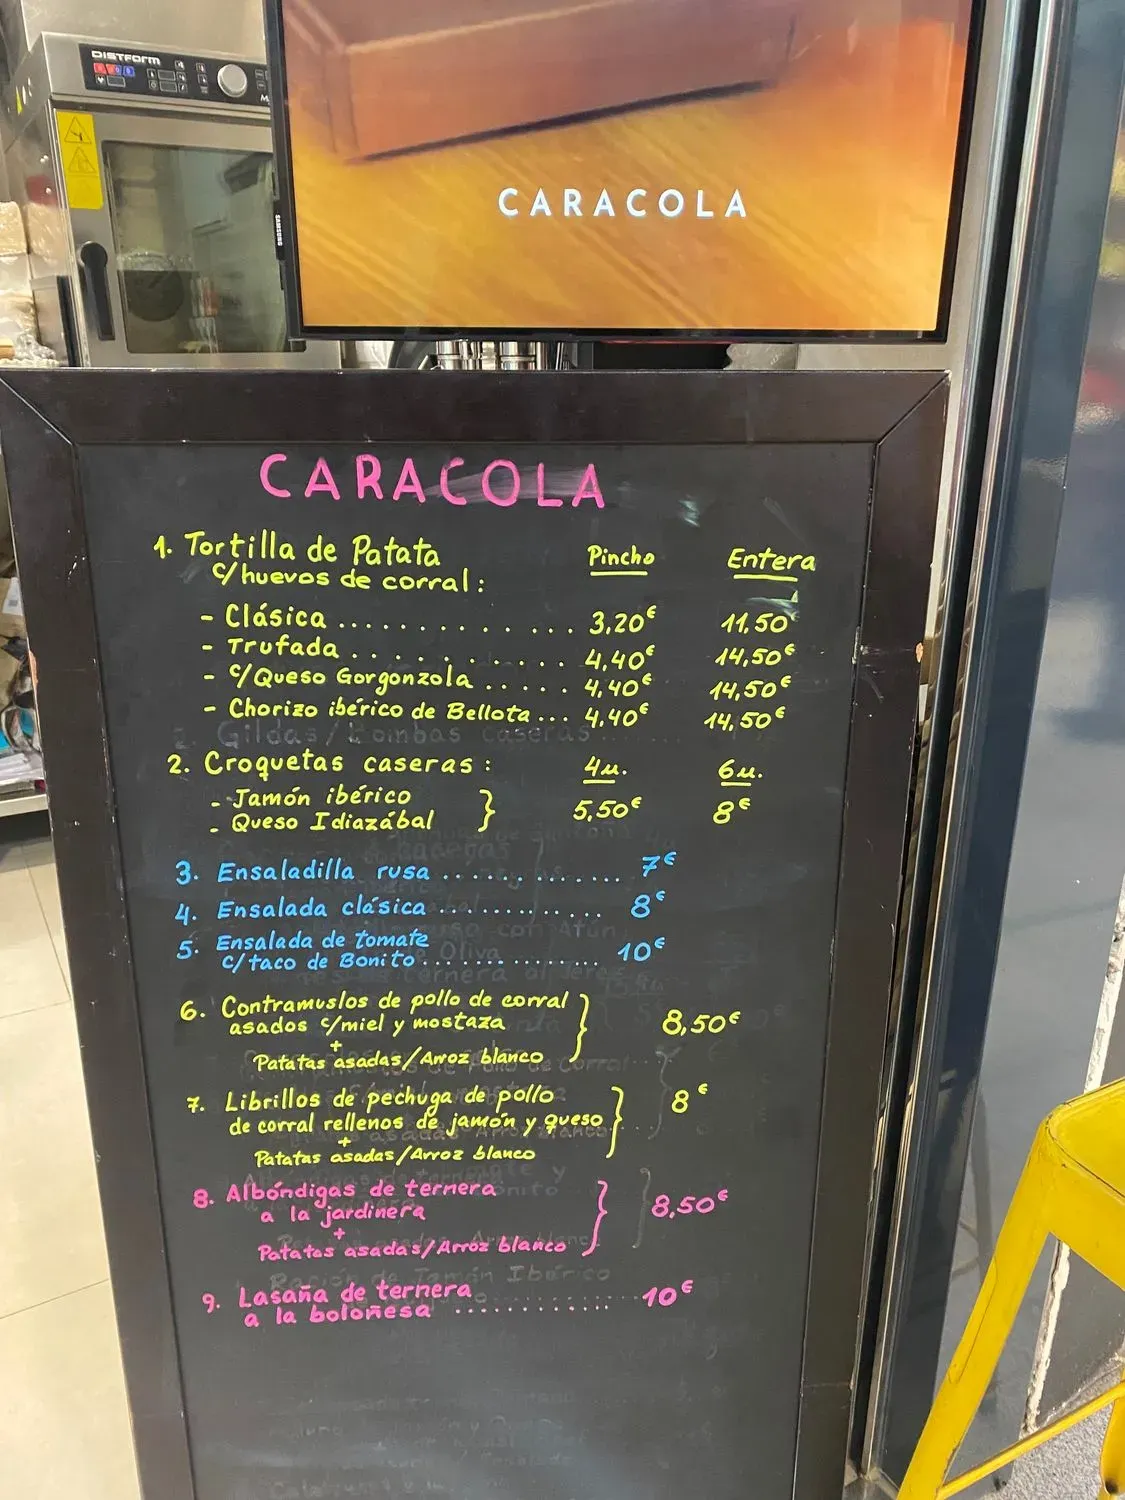 DISTFORM
SAMSUNG
CARACOLA
CARACOLA
1. Tortilla de Patata Pincho Entera
c/huevos de corral:
- Clásica ............. 3,20€ 11,50€
- Trufada .......... 4,40€ 14,50€
- c/Queso Gorgonzola ..... 4,40€ 14,50€
- Chorizo ibérico de Bellota ... 4,40€ 14,50€
2. Gildas/bombas caseras
2. Croquetas caseras: 4u. 6u.
- Jamón ibérico
- Queso Idiazábal } 5,50€ 8€
3. Ensaladilla rusa ............. 7€
4. Ensalada clásica ............ 8€
5. Ensalada de tomate
c/taco de Bonito ............ 10€
6. Contramuslos de pollo de corral
asados c/miel y mostaza } 8,50€
+
Patatas asadas/Arroz blanco
7. Librillos de pechuga de pollo } 8€
de corral rellenos de jamón y queso
+
Patatas asadas/Arroz blanco
8. Albóndigas de ternera } 8,50€
a la jardinera
+
Patatas asadas/Arroz blanco
Ración de Jamón Ibérico
9. Lasaña de ternera
a la boloñesa ............ 10€